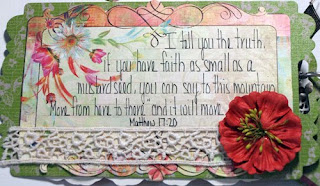 I tell you the truth.
If you have faith as small as a
mustard seed, you can say to this mountain
"Move from here to there" and it will move.
Matthew 17:20